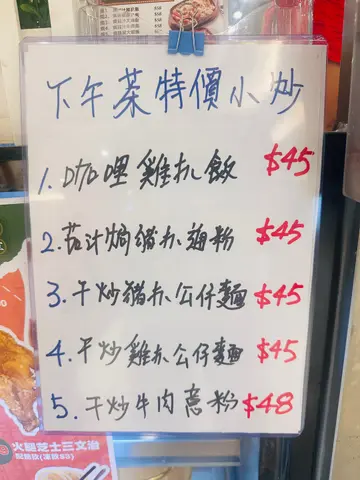 下午茶特價小炒
1. 咖哩雞扒飯 $45
2. 茄汁焗豬扒通粉 $45
3. 干炒豬扒公仔麵 $45
4. 干炒雞扒公仔麵 $45
5. 干炒牛肉意粉 $48
火腿芝士三文治